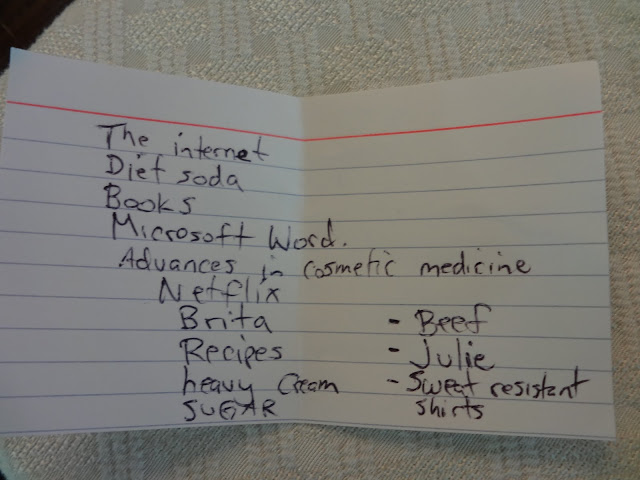 The internet
Diet soda
Books
Microsoft Word.
Advances in cosmetic medicine
Netflix
Brita - Beef
Recipes - Julie
heavy Cream - Sweat resistant
SUGAR shirts